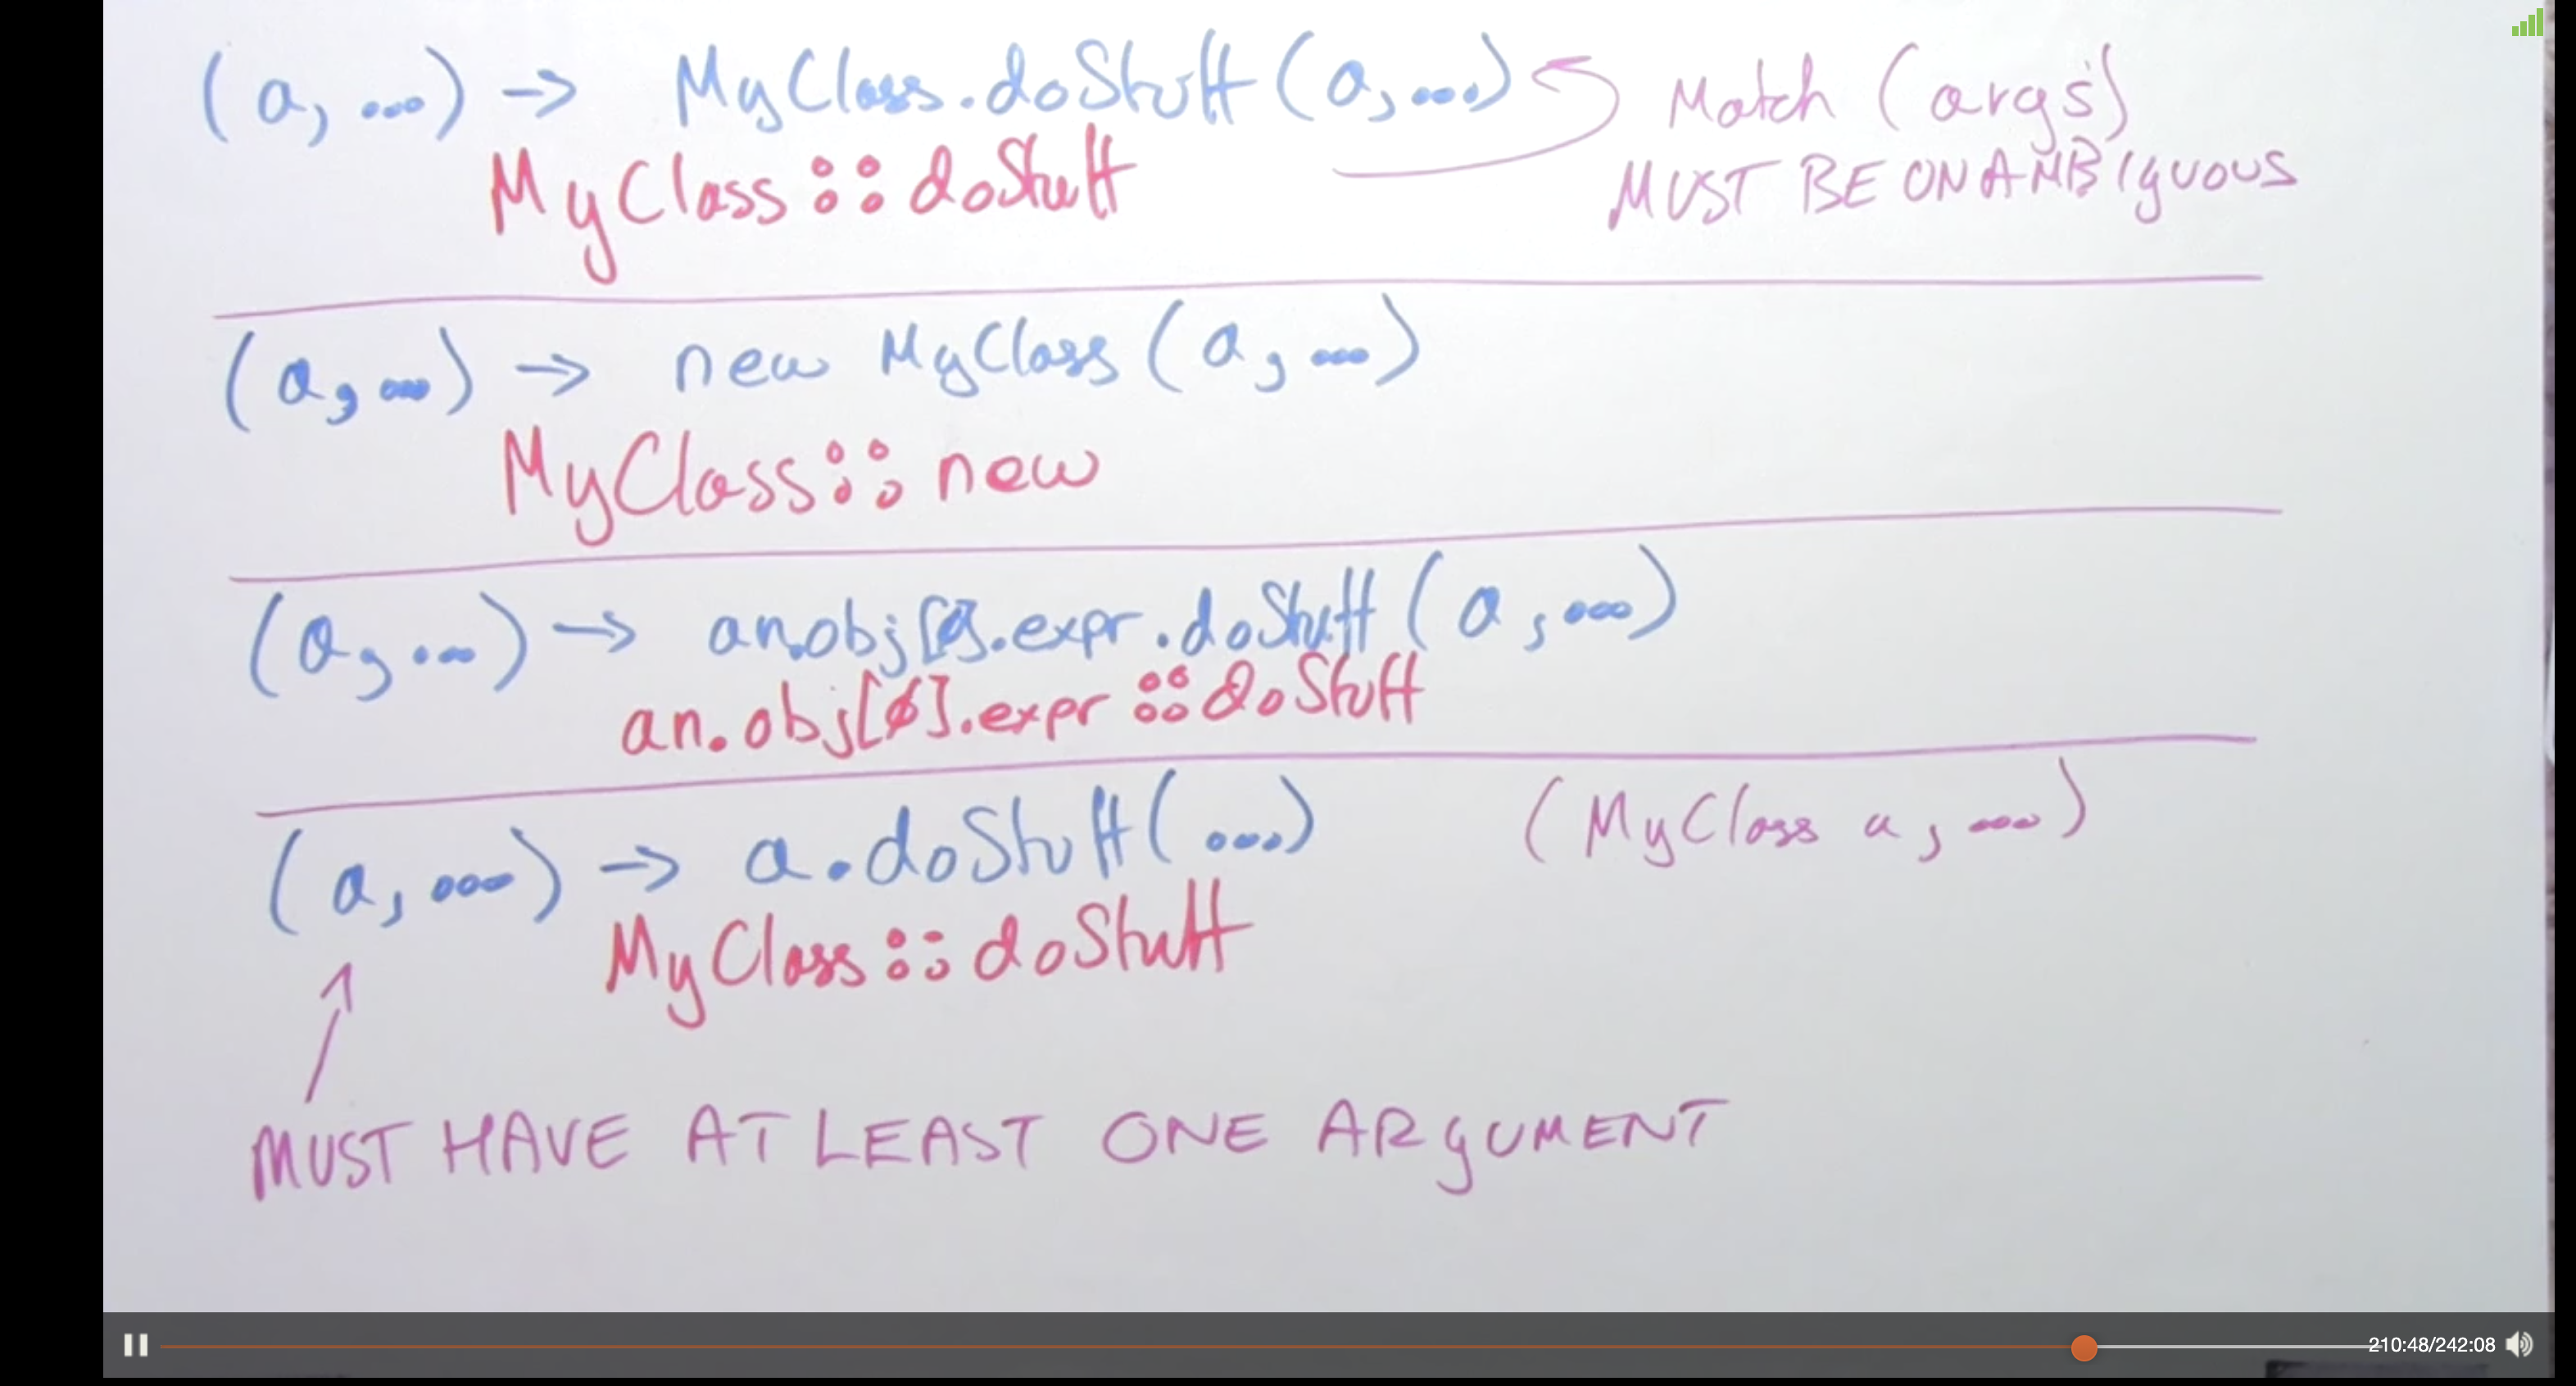 (a, ...) → MyClass.doStuff(a, ...)
Match (args)
MyClass::doStuff
MUST BE UNAMBIGUOUS
(a, ...) → new MyClass(a, ...)
MyClass::new
(a, ...) → an.obj[0].expr.doStuff(a, ...)
an.obj[0].expr::doStuff
(a, ...) → a.doStuff(...)
(MyClass a, ...)
MyClass::doStuff
MUST HAVE AT LEAST ONE ARGUMENT
210:48/242:08